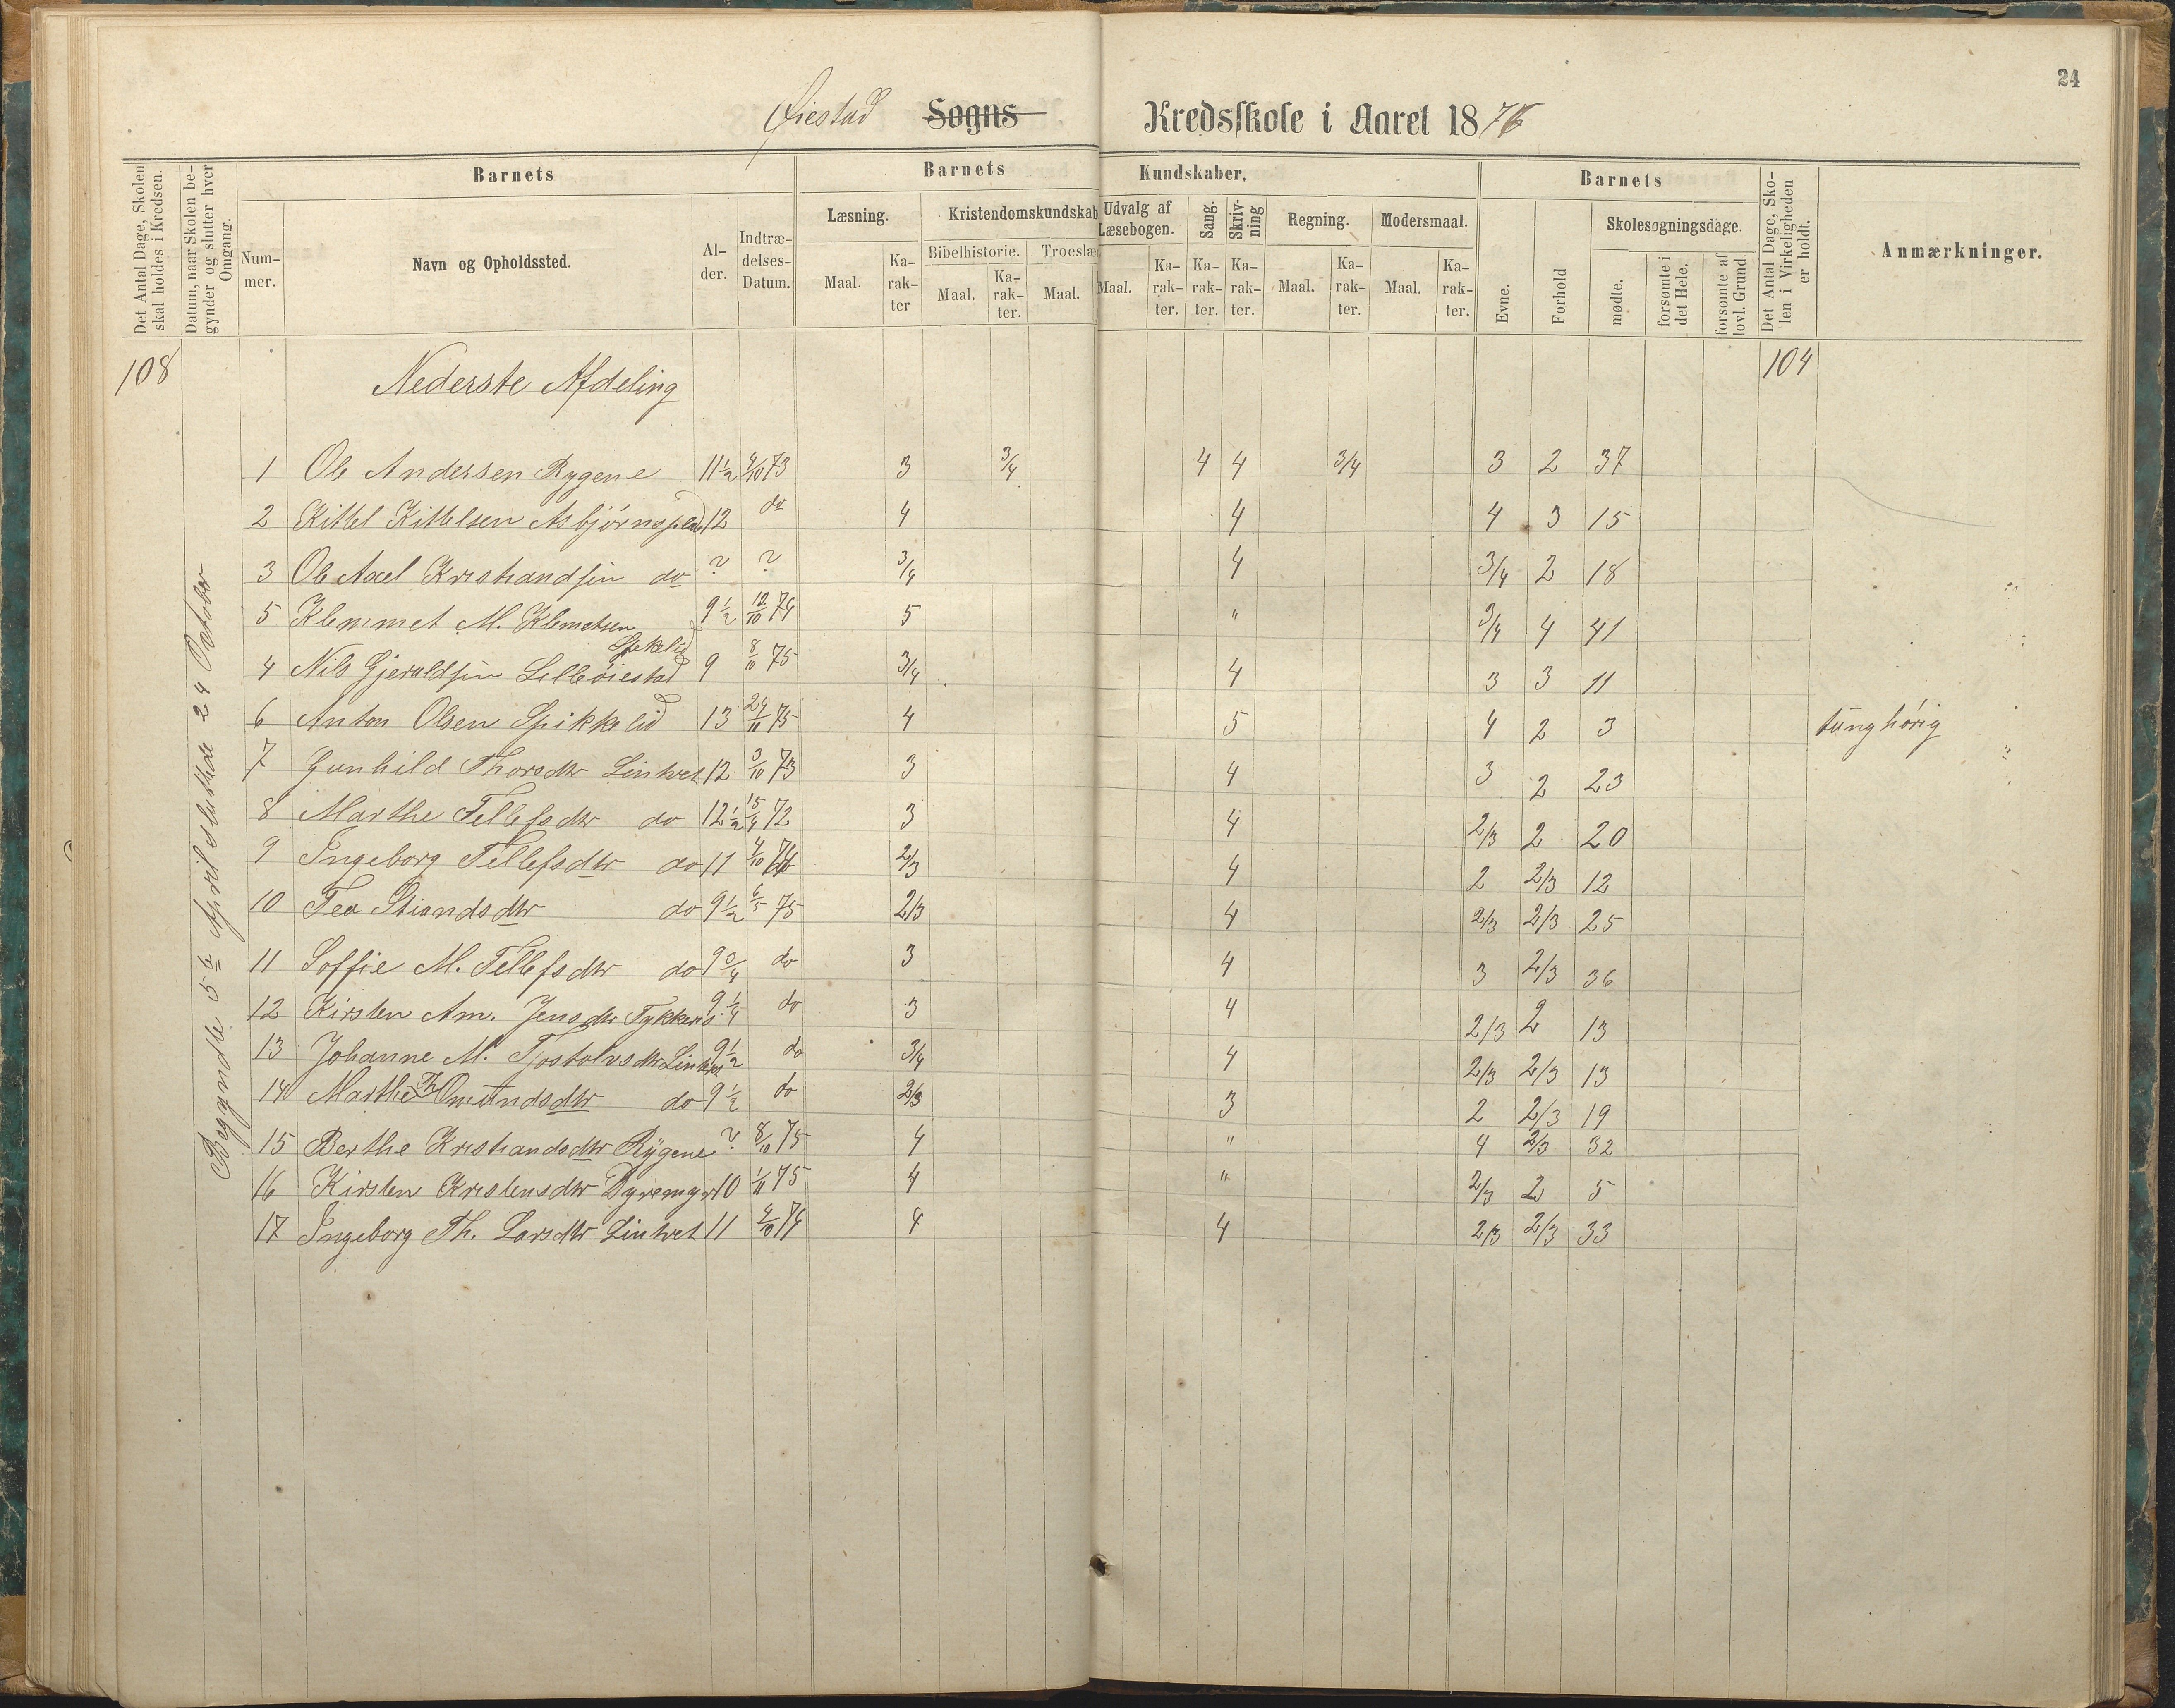 24
Øiestad Sogns Kredsskole i Aaret 1876
Det Antal Dage, Skolen skal holdes i Kredsen.
Datum, naar Skolen begynder og slutter hver Omgang.
Barnets
Nummer.
Navn og Opholdssted.
Alder.
Indtrædelses-Datum.
Barnets Kundskaber.
Læsning.
Maal.
Karakter
Kristendomskundskab
Bibelhistorie.
Maal.
Karakter.
Troeslær
Maal.
Udvalg af Læsebogen.
Maal.
Karakter.
Sang.
Karakter.
Skrivning
Karakter.
Regning.
Maal.
Karakter.
Modersmaal.
Maal.
Karakter.
Barnets
Evne.
Forhold
Skolesøgningsdage.
mødte.
forsømte i det Hele.
forsømte af lovl. Grund.
Det Antal Dage, Skolen i Virkeligheden er holdt.
Anmærkninger.
108 Nederste Afdeling 104
Begyndte 5te April sluttede 24 October
1 Ole Andersen Rygene 11½ 4/10 73 3 3/4 4 4 3/4 3 2 37
2 Kittel Kittelsen Asbjørnsplads 12 do 4 4 4 3 15
3 Ole Axel Kristiandsen do ? ? 3/4 4 3/4 2 18
5 Klemmet M. Klemetsen Spikelid 9½ 12/10 74 5 " 3/4 4 41
4 Nils Gjeruldsen Lilleøiestad 9 8/10 75 3/4 4 3 3 11
6 Anton Olsen Spikkelid 13 24/11 75 4 5 4 2 3 tunghørig
7 Gunhild Thorsdtr Lintvet 12 3/10 73 3 4 3 2 23
8 Marthe Tellefsdtr do 12½ 15/4 72 3 4 2/3 2 20
9 Ingeborg Tellefsdtr do 11 4/10 74 2/3 4 2 2/3 12
10 Tea Stiandsdtr do 9½ 6/5 75 2/3 4 2/3 2/3 25
11 Soffie M. Tellefsdtr do 9 0/4 do 3 4 3 2/3 36
12 Kirsten Am. Jensdtr Tykkens 9¼ do 3 4 2/3 2 13
13 Johanne M. Tostolvsdtr Lintvet 9½ do 3/4 4 2/3 2/3 13
14 Marthe Th Omundsdtr do 9½ do 2/3 3 2 2/3 19
15 Berthe Kristiandsdtr Rygene ? 8/10 75 4 " 4 2/3 32
16 Kirsten Kristensdtr Dyremyr 10 1/11 75 4 " 2/3 2 5
17 Ingeborg Th. Larsdtr Lintvet 11 4/10 74 4 4 2/3 2/3 33